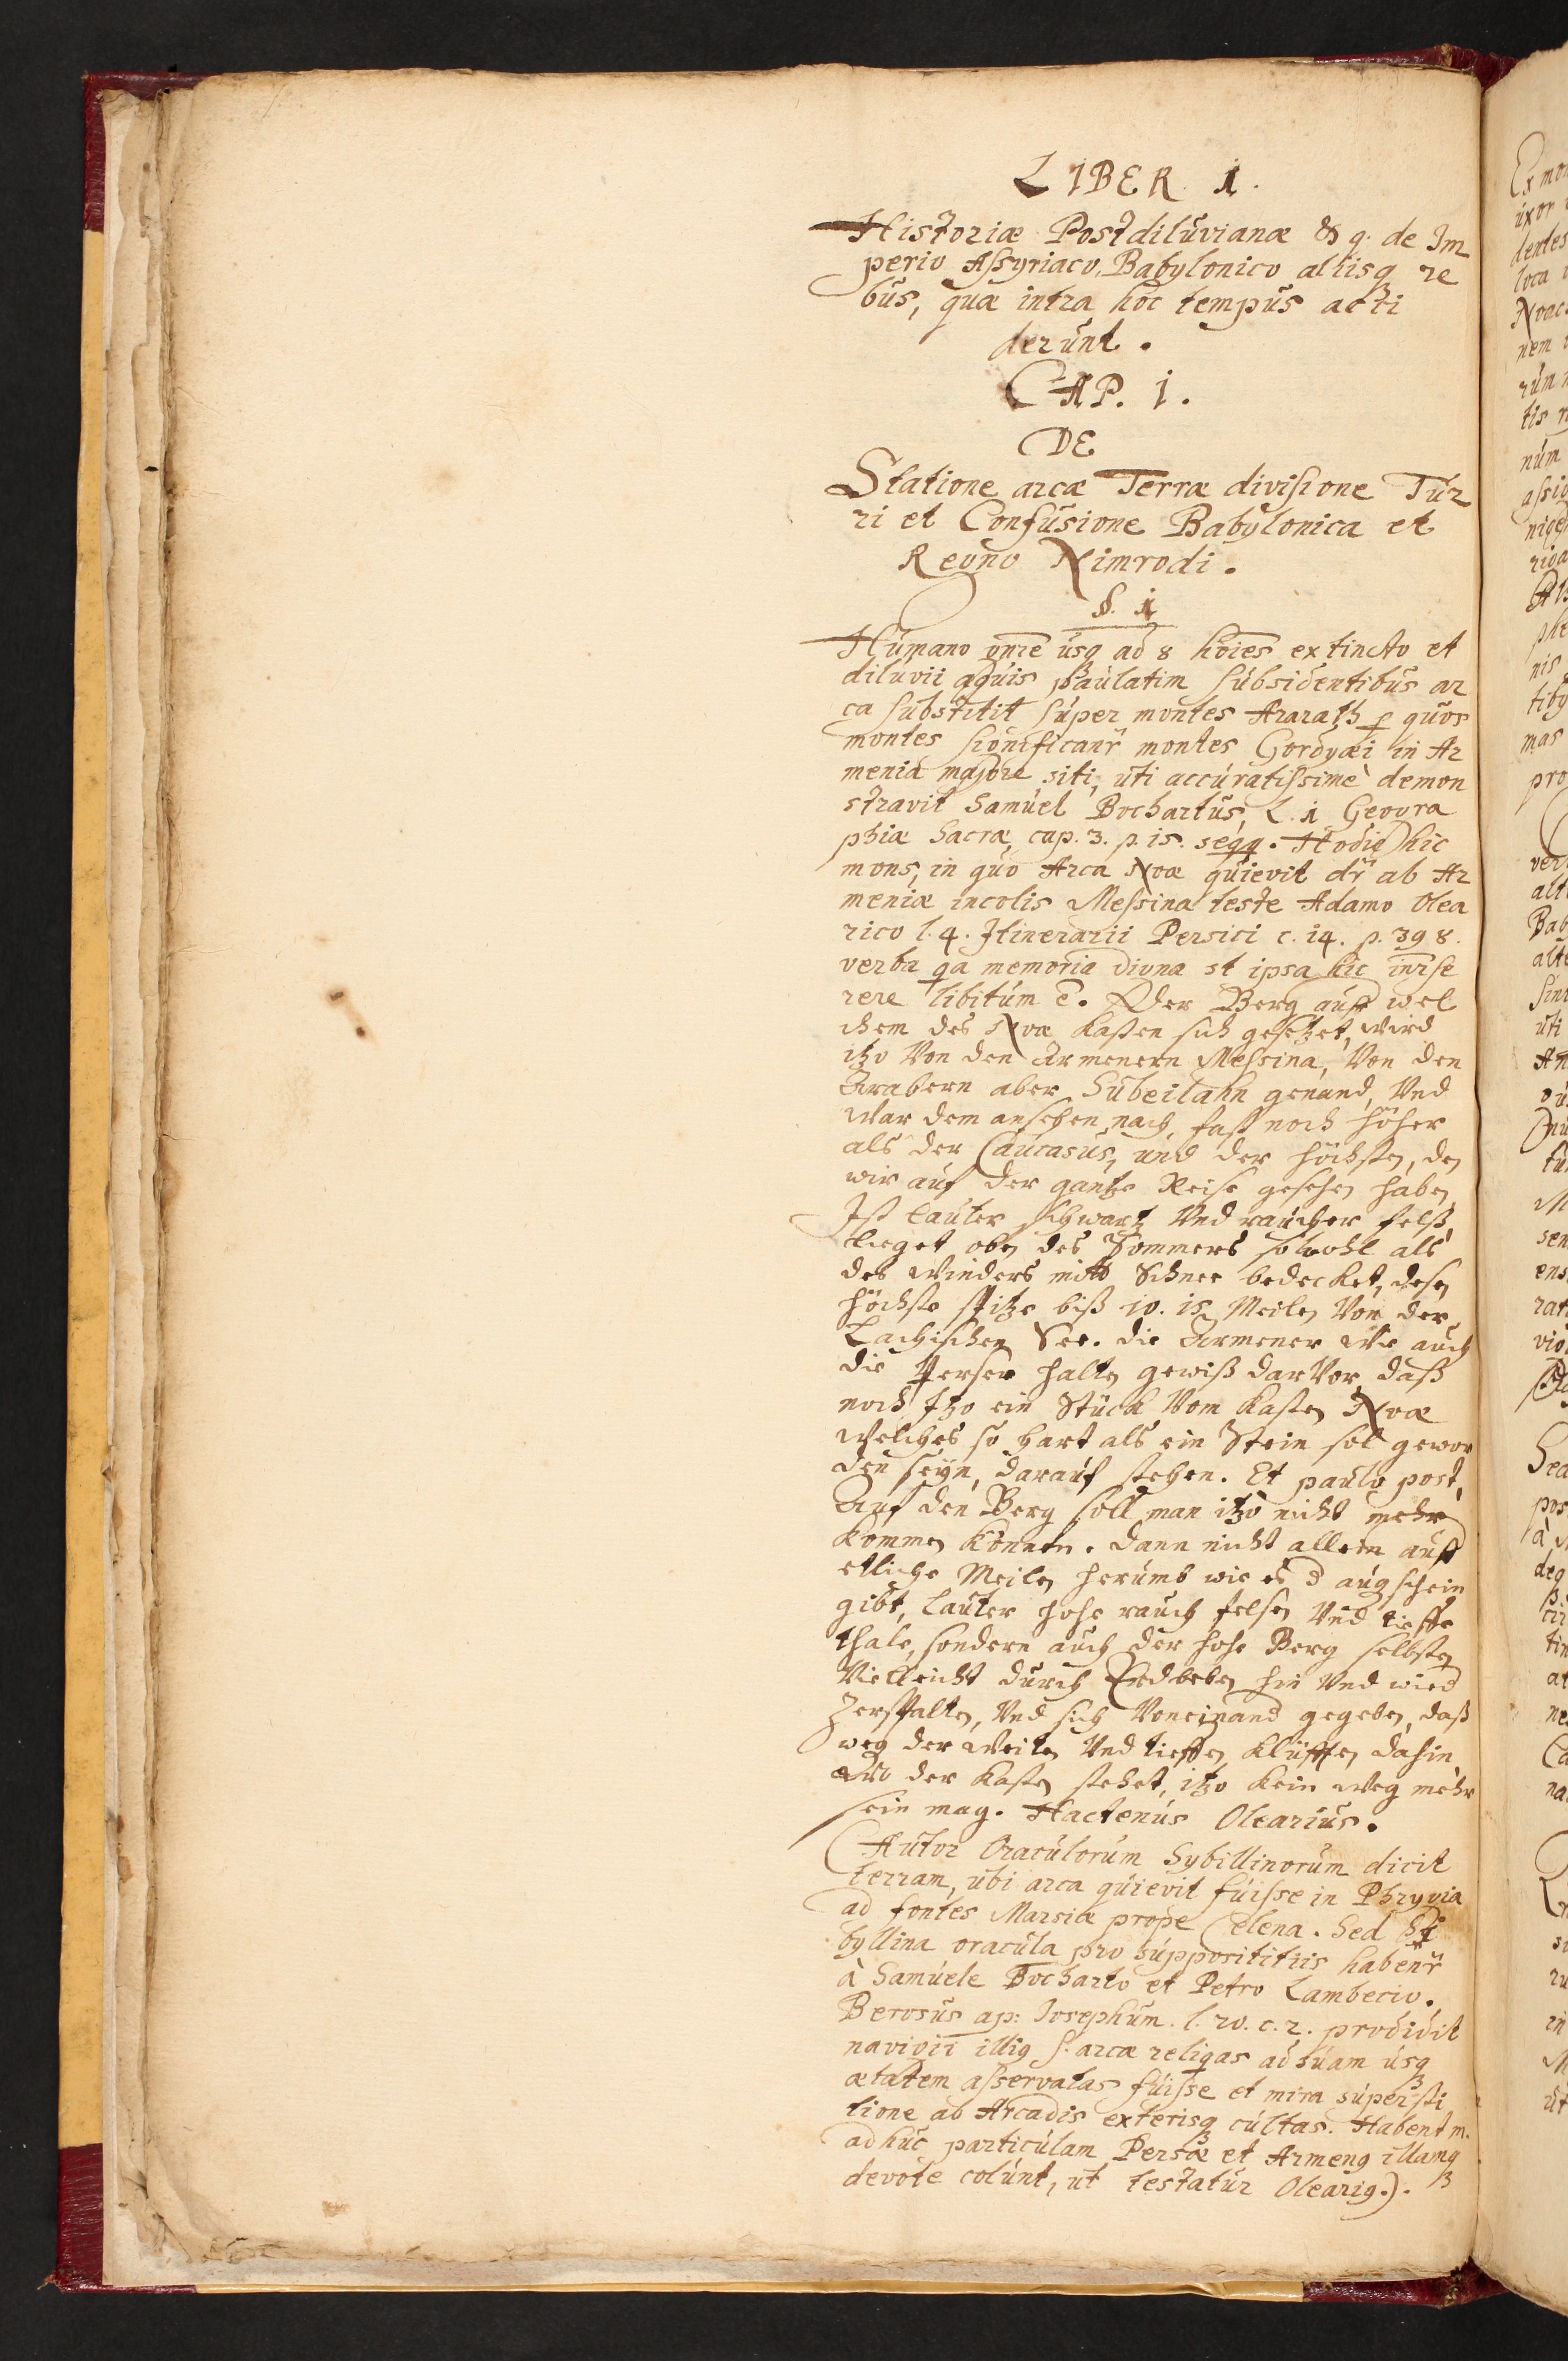 LIBER. 1.
Historiæ Postdiluvianæ & q. de Im
perio Assyriaco, Babylonico aliisq re
bus, quæ intra hoc tempus acci
derunt.
CAP. 1.
DE
Statione arcæ Terræ divisione Tur
ri et Confusione Babylonica et
Regno Nimrodi.
§. 1
Humano gnre usq ad 8 hoies extincto et
diluvii aquis paulatim subsidentibus ar
ca substitit super montes Ararath p quos
montes significanr montes Gordyæi in Ar
menia majore siti, uti accuratissimè demon
stravit Samuel Bochartus, L. 1 Geogra
phiæ Sacræ, cap. 3. p. 15. seqq. Hodie hic
mons, in quo Arca Noæ quievit dr ab Ar
meniæ incolis Messina teste Adamo Olea
rico l. 4. Itinerarii Persici c. 14. p. 398.
verba qa memoria digna st ipsa hic inrse
rere libitum e. Der Berg auff wel
chem des Noæ Kasten sich gesetzet, wird
itzo Von den Armenern Messina, Von den
Arabern aber Subeilahn genand, Vnd
War dem ansehen nach, fast noch höher
als der Caucasus, und der höchsten, den
wir auf der gantze Reise gesehen haben,
Ist lauter schwartz Vnd raucher felß,
lieget oben des Sommers so wohl als
des Winders mitt Schnee bedecket, desen
höchste spitze biß 10. 15 Meilen Von der
Cachischen See. die Armener Wie auch
die Perser halten gewiß dar Vor, daß
noch Itzo ein Stück Vom Kasten Noæ
Welches so hart als ein Stein sol gewor
den seyn, darauf stehen. Et paulo post,
Auf den Berg soll man itzo nicht mehr
Kommen Können. dann nicht allein auff
etliche Meilen herumb wie es d augschein
gibt, lauter hohe rauch felsen Vnd tieffe
thale, sondern auch der hohe Berg selbsten
Vielleicht durch Erdbeben hin Vnd wied
Zerspalten, Vnd sich Voneinand gegeben, daß
weg der Weiten Vnd tieffen Klüfften dahin
Wo der Kasten stehet, itzo Kein Weg mehr
sein mag. Hactenus Olearius.
(Autor Oraculorum Sybillinorum dicit
terram, ubi arca quievit fuisse in Phrygia
ad fontes Marsiæ prope Celena. Sed Si
byllina oracula pro supposititiis habenr
à Samuele Bocharto et Petro Lambecio.
Berosus ap: Iosephum. l. 20. c. 2. prodidit
navigii illig s. arcæ reliqas ad suam usq
ætatem asservatas fuisse et mira supersti
tione ab Arcadis exterisq cultas. Habent m.
adhuc particulam Persæ et Armeng illamq
devote colunt, ut testatur Olearig.).